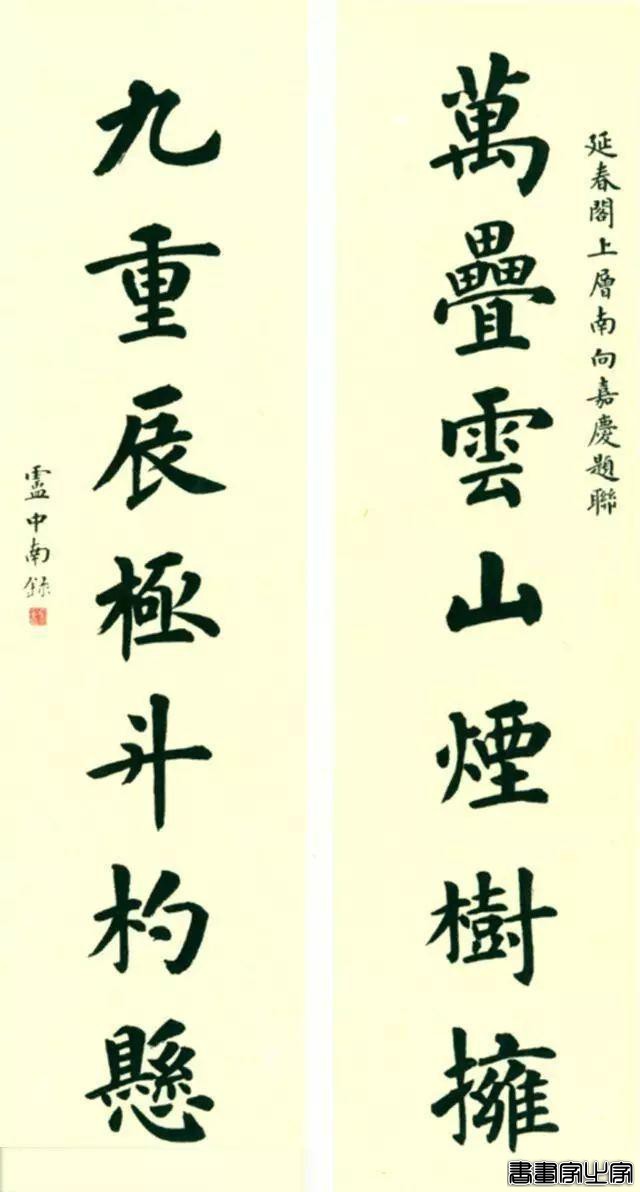 延春閣上層南向嘉慶題聯
萬疊雲山煙樹擁
九重辰極斗杓懸
盧中南錄
書畫家之家